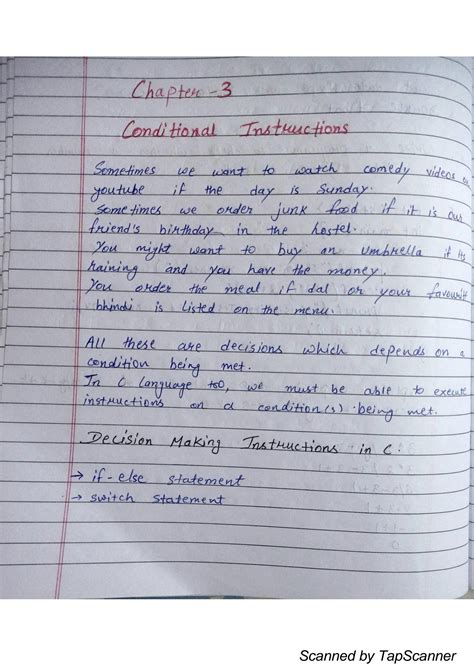 Chapter - 3
Conditional Instructions
Sometimes we want to watch comedy videos on
youtube if the day is Sunday.
Sometimes we order junk food if it is our
friend's birthday in the hostel.
You might want to buy an umbrella if its
raining and you have the money.
You order the meal if dal or your favourite
bhindi is listed on the menu.
All these are decisions which depends on a
condition being met.
In C language too, we must be able to execute
instructions on a condition(s) being met.
Decision Making Instructions in C.
→ if-else statement
→ switch statement
Scanned by TapScanner